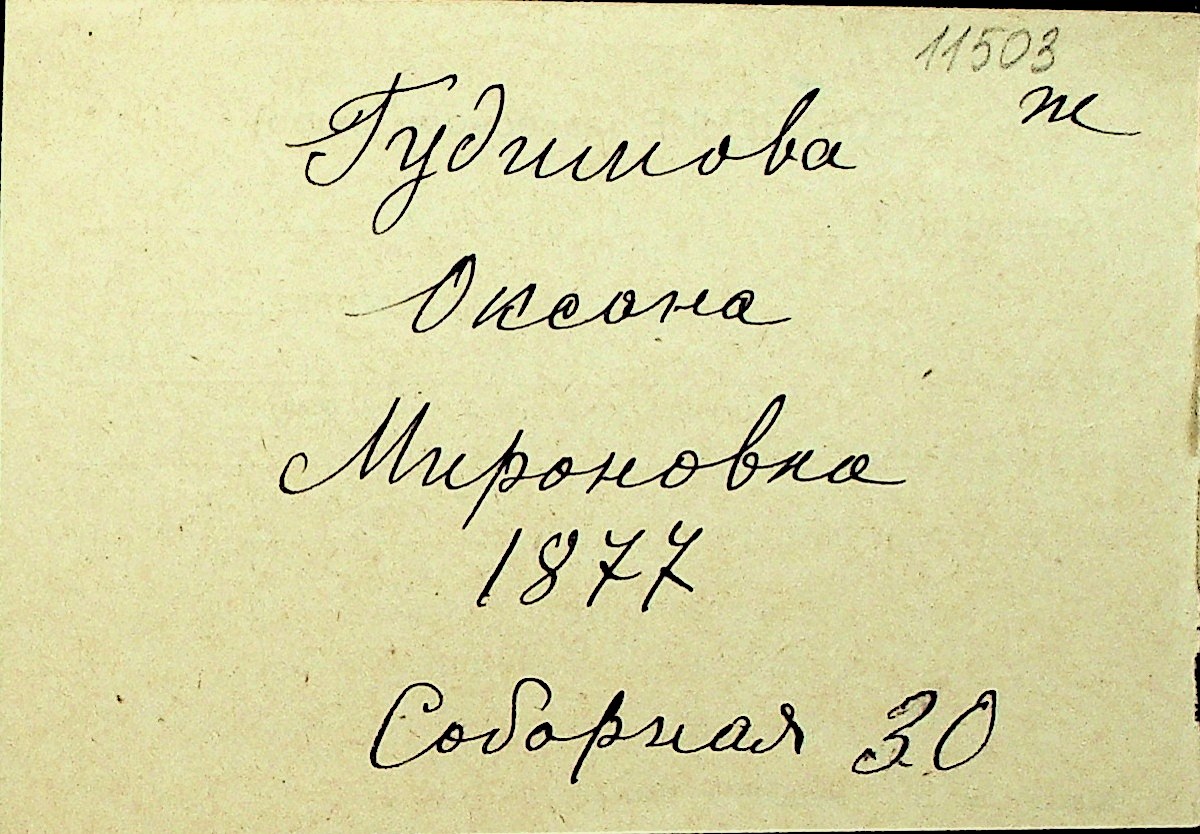 11503
ж
Гудимова
Оксана
Мироновна
1877
Соборная 30